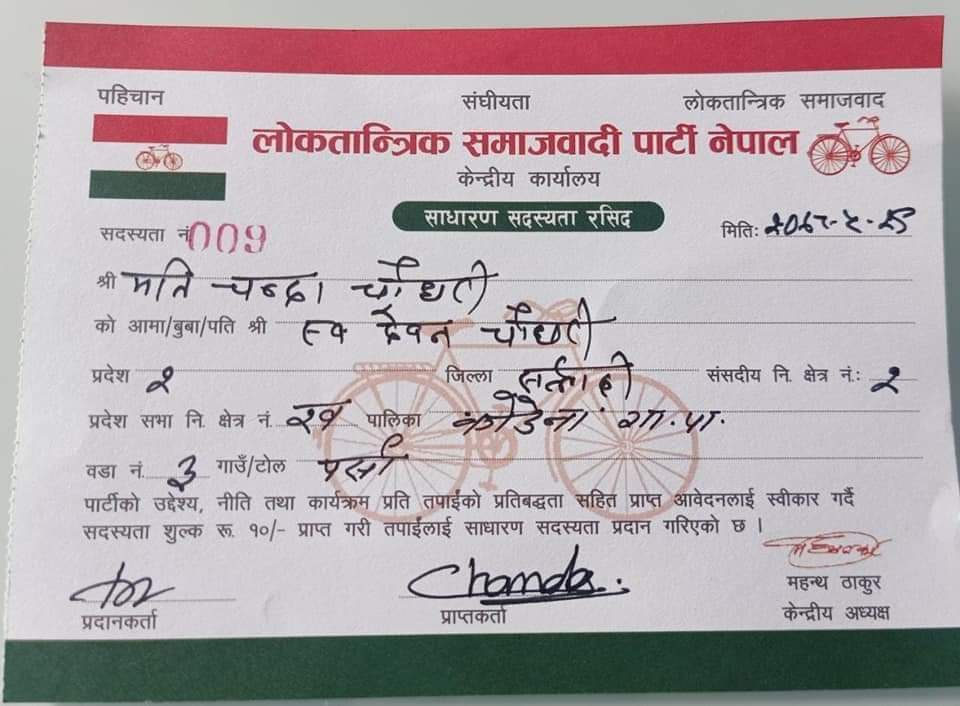 पहिचान संघीयता लोकतान्त्रिक समाजवाद
लोकतान्त्रिक समाजवादी पार्टी नेपाल
केन्द्रीय कार्यालय
साधारण सदस्यता रसिद
सदस्यता नं 009 मितिः
श्री मति चन्द्रा चौधरी
को आमा/बुबा/पति श्री स्व देवन चौधरी
प्रदेश २ जिल्ला सर्लाही संसदीय नि. क्षेत्र नं.: २
प्रदेश सभा नि. क्षेत्र नं. २ख पालिका कौडेना गा.पा.
वडा नं. ३ गाउँ/टोल पर्सा
पार्टीको उद्देश्य, नीति तथा कार्यक्रम प्रति तपाईंको प्रतिबद्धता सहित प्राप्त आवेदनलाई स्वीकार गर्दै
सदस्यता शुल्क रू. १०/- प्राप्त गरी तपाईंलाई साधारण सदस्यता प्रदान गरिएको छ ।
Chanda
प्रदानकर्ता प्राप्तकर्ता महन्थ ठाकुर
केन्द्रीय अध्यक्ष